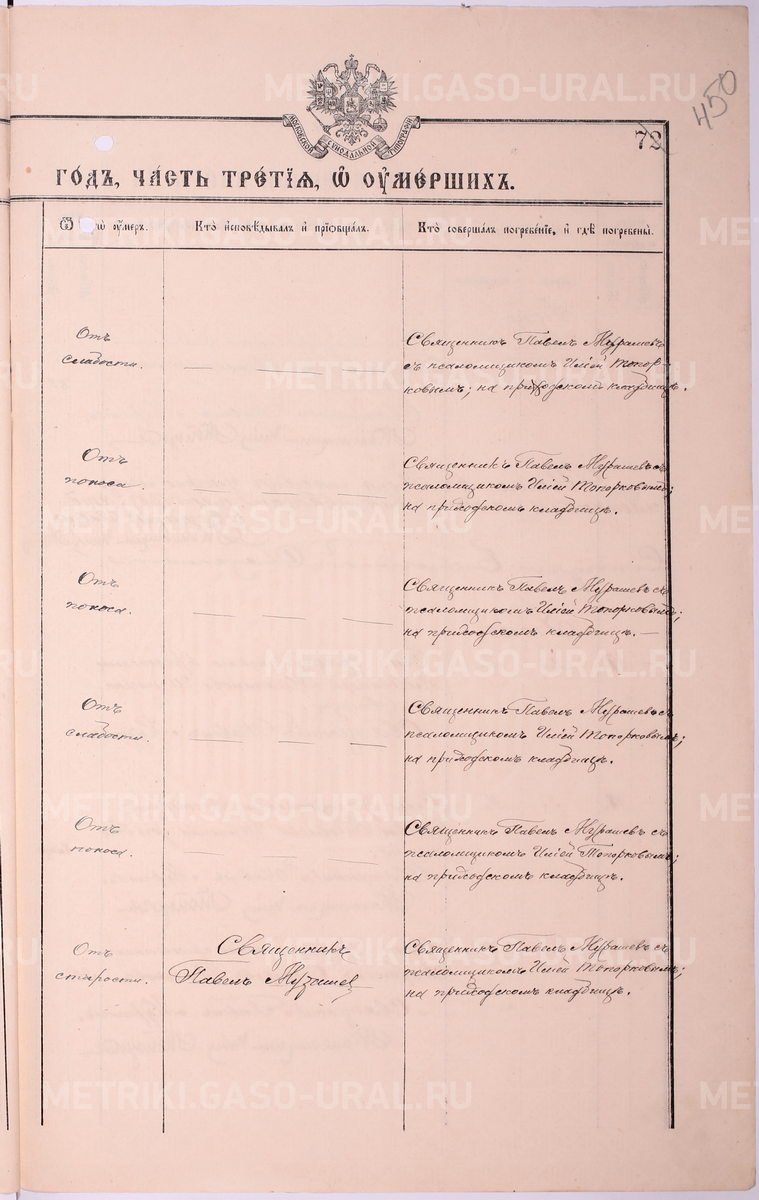 METRIKI.GASO-URAL.RU
450
МОСКОВСКОЙ СѴНОДАЛЬНОЙ ТИПОГРАФІИ
72
ГО́ДЪ, ЧА́СТЬ ТРЕ́ТІѦ, Ѡ҆ ОУ҆МЕ́РШИХЪ.
Ѿ ѡ҆ у҆́меръ.
Кто̀ и҆сповѣ́дывалъ и҆ прїѡбща́лъ.
Кто̀ соверша́лъ погребе́нїе, и҆ гдѣ̀ погребены̀.
Отъ
слабости.
Священникъ Павелъ Мурашевъ
съ псаломщикомъ Иліей Топор
ковымъ; на приходскомъ кладбищѣ.
Отъ
поноса.
Священникъ Павелъ Мурашевъ съ
псаломщикомъ Иліей Топорковымъ;
на приходскомъ кладбищѣ.
Отъ
поноса.
Священникъ Павелъ Мурашевъ съ
псаломщикомъ Иліей Топорковымъ;
на приходскомъ кладбищѣ. —
Отъ
слабости.
Священникъ Павелъ Мурашевъ съ
псаломщикомъ Иліей Топорковымъ;
на приходскомъ кладбищѣ.
Отъ
поноса.
Священникъ Павелъ Мурашевъ съ
псаломщикомъ Иліей Топорковымъ;
на приходскомъ кладбищѣ.
Отъ
старости.
Священникъ
Павелъ Мурашев
Священникъ Павелъ Мурашевъ съ
псаломщикомъ Иліей Топорковымъ;
на приходскомъ кладбищѣ.